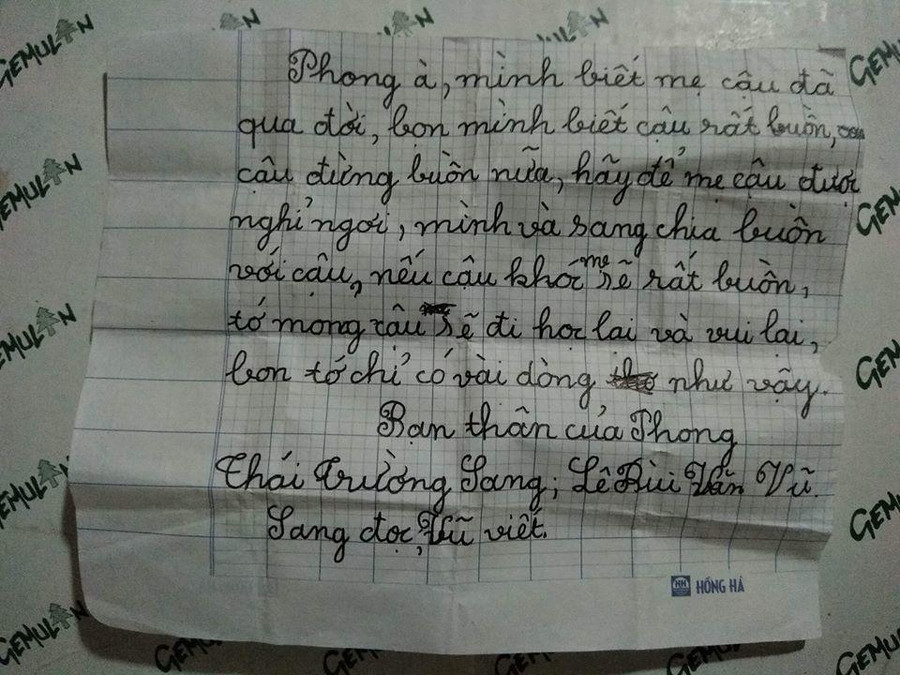 Phong à, mình biết mẹ cậu đã
qua đời, bọn mình biết cậu rất buồn,
cậu đừng buồn nữa, hãy để mẹ cậu được
nghỉ ngơi, mình và sang chia buồn
với cậu, nếu cậu khóc mẹ sẽ rất buồn,
tớ mong cậu sẽ đi học lại và vui lại,
bọn tớ chỉ có vài dòng như vậy.
Bạn thân của Phong
Thái Trường Sang; Lê Bùi Văn Vũ.
Sang đọc, Vũ viết.
HỒNG HÀ
GEMULAN
GEMULAN
GEMULAN
GEMULAN
GEMULAN
GEMULAN